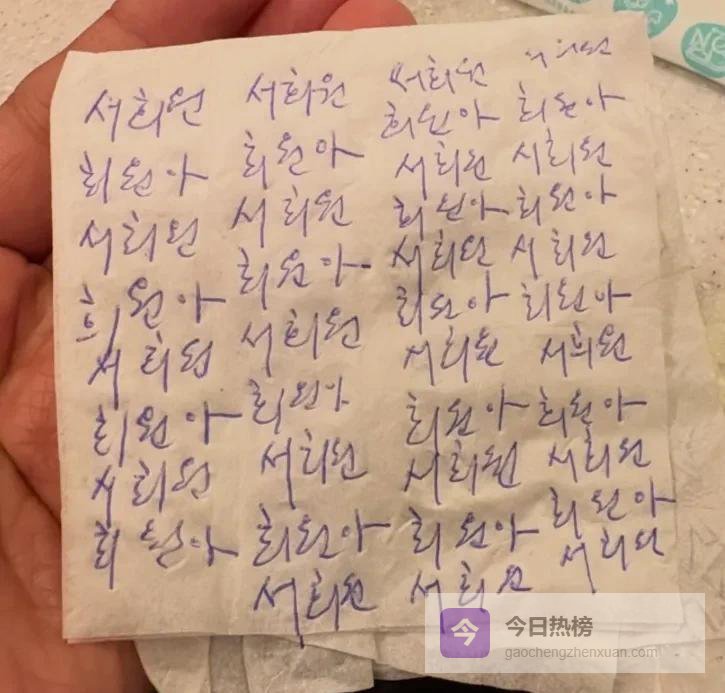 서희원
희원아
서희원
희원아
서희원
희원아
서희원
희원아
서희원
희원아
서희원
희원아
서희원
희원아
서희원
희원아
서희원
서희원
희원아
서희원
희원아
서희원
희원아
서희원
희원아
서희원
희원아
서희원
서희원
희원아
서희원
희원아
서희원
희원아
서희원
희원아
서희원
희원아
서희원
今 今日热榜
gaochengzhenxuan.com